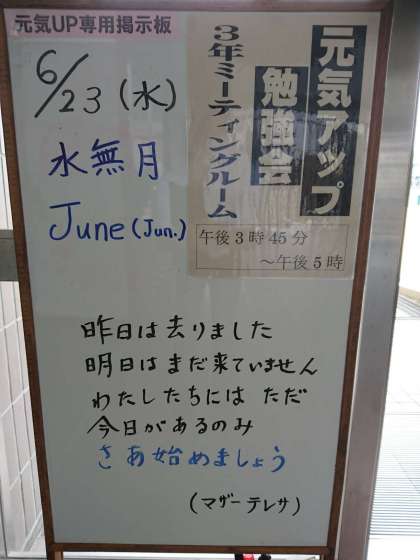 元気UP専用掲示板
6/23(水)
水無月
June(Jun.)
元気アップ
勉強会
3年ミーティングルーム
午後3時45分
~午後5時
昨日は去りました
明日はまだ来ていません
わたしたちには ただ
今日があるのみ
さあ始めましょう
(マザーテレサ)